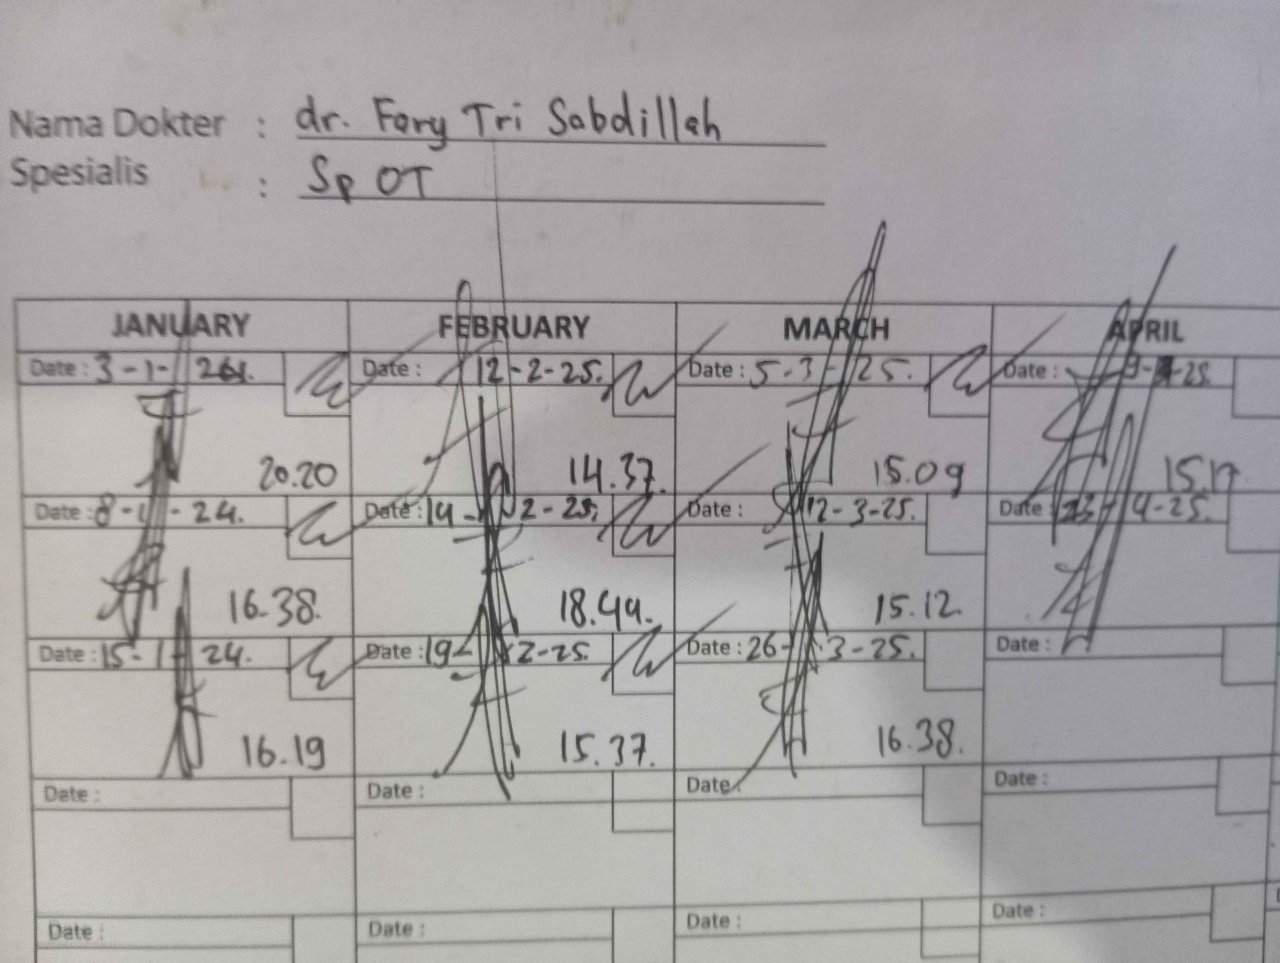 Nama Dokter : dr. Fary Tri Sabdillah
Spesialis : Sp OT
JANUARY FEBRUARY MARCH APRIL
Date : 3-1- Date : 12-2-25. Date : 5-3-25. Date : -25
20.20 14.37. 15.09
Date : 8-1-24. Date : 14-2-25. Date : 12-3-25. Date : 23-4-25.
16.38. 18.44. 15.12.
Date : 15-1-24. Date : 19-2-25. Date : 26-3-25. Date :
16.19 15.37. 16.38.
Date : Date : Date : Date :
Date : Date : Date : Date :